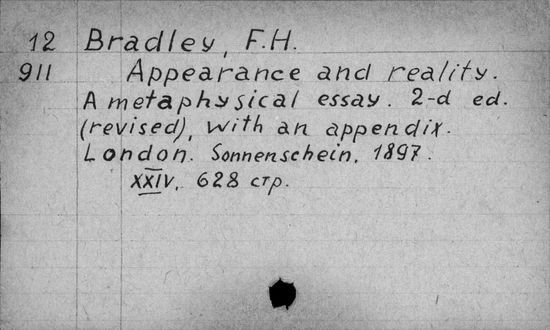 12 Bradley, F.H.
911 Appearance and reality.
A metaphysical essay. 2-d ed.
(revised), with an appendix.
London. Sonnenschein, 1897.
XXIV, 628 стр.